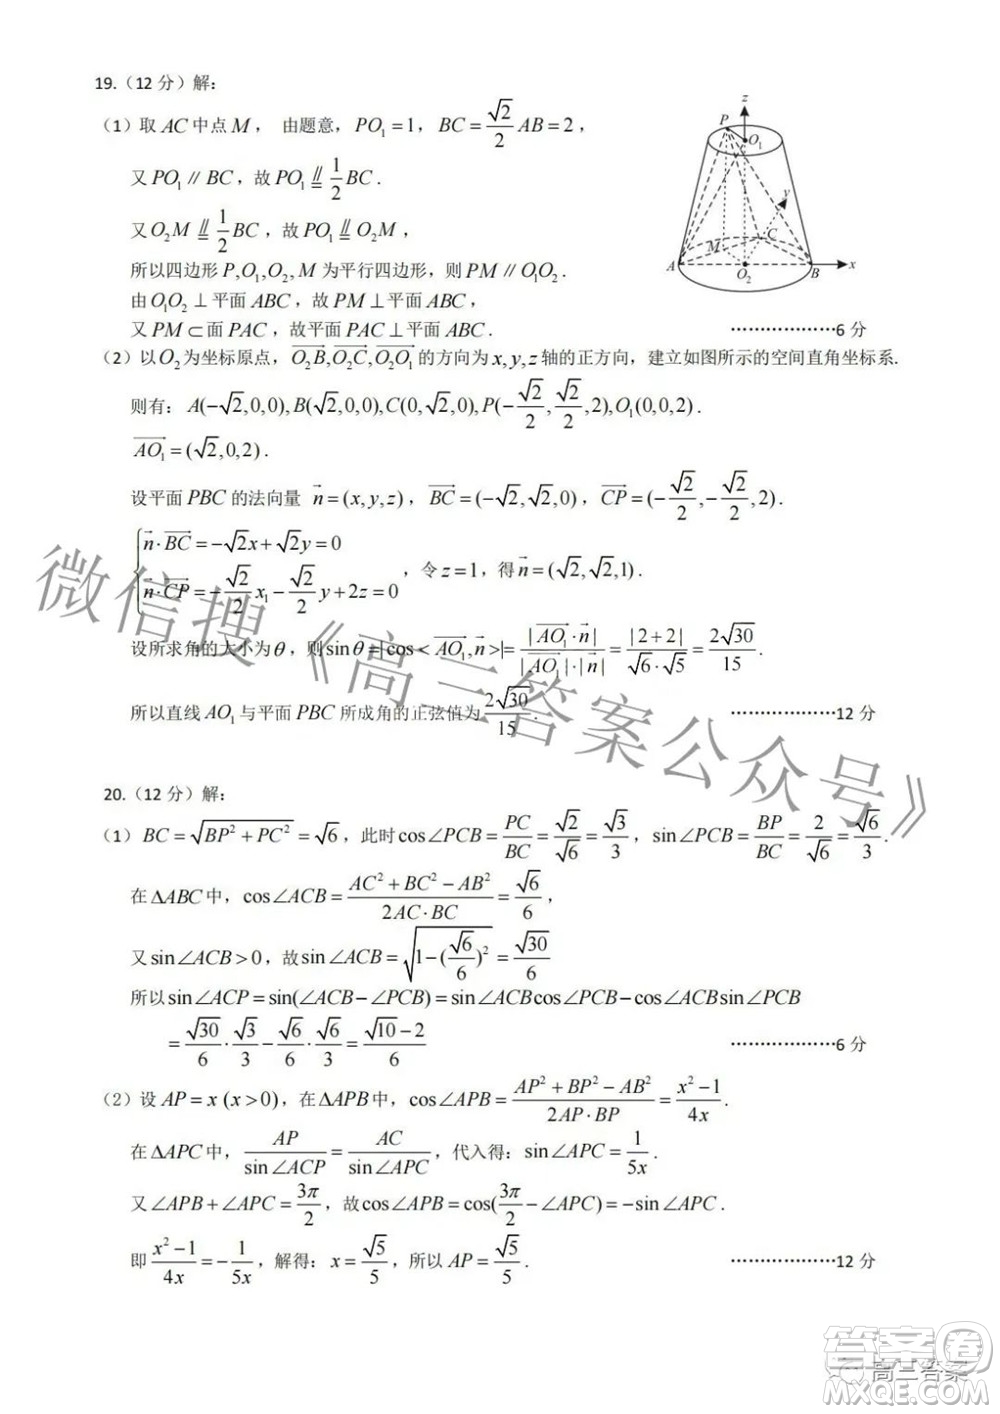 19.（12 分）解：
（1）取 AC 中点 M， 由题意，PO₁ = 1，BC = \frac{\sqrt{2}}{2} AB = 2，
又 PO₁ // BC，故 PO₁ ⫽͇ \frac{1}{2} BC．
又 O₂M ⫽͇ \frac{1}{2} BC，故 PO₁ ⫽͇ O₂M，
所以四边形 P, O₁, O₂, M 为平行四边形，则 PM // O₁O₂．
由 O₁O₂ ⊥ 平面 ABC，故 PM ⊥ 平面 ABC，
又 PM ⊂ 面 PAC，故平面 PAC ⊥ 平面 ABC． ………………6 分
z
P
O₁
y
M
C
A
O₂
B
x
（2）以 O₂ 为坐标原点，\overrightarrow{O₂B}, \overrightarrow{O₂C}, \overrightarrow{O₂O₁} 的方向为 x, y, z 轴的正方向，建立如图所示的空间直角坐标系.
则有：A(-\sqrt{2},0,0), B(\sqrt{2},0,0), C(0,\sqrt{2},0), P(-\frac{\sqrt{2}}{2},\frac{\sqrt{2}}{2},2), O₁(0,0,2)．
\overrightarrow{AO₁} = (\sqrt{2},0,2)．
设平面 PBC 的法向量 \vec{n} = (x, y, z)，\overrightarrow{BC} = (-\sqrt{2},\sqrt{2},0)，\overrightarrow{CP} = (-\frac{\sqrt{2}}{2},-\frac{\sqrt{2}}{2},2)．
{ \vec{n}·\overrightarrow{BC} = -\sqrt{2}x + \sqrt{2}y = 0
\vec{n}·\overrightarrow{CP} = -\frac{\sqrt{2}}{2}x₁ - \frac{\sqrt{2}}{2}y + 2z = 0 ，令 z = 1，得 \vec{n} = (\sqrt{2},\sqrt{2},1)．
设所求角的大小为 θ，则 sin θ = |cos < \overrightarrow{AO₁}, \vec{n} >| = \frac{|\overrightarrow{AO₁}·\vec{n}|}{|\overrightarrow{AO₁}|·|\vec{n}|} = \frac{|2+2|}{\sqrt{6}·\sqrt{5}} = \frac{2\sqrt{30}}{15}．
所以直线 AO₁ 与平面 PBC 所成角的正弦值为 \frac{2\sqrt{30}}{15}． ………………12 分
20.（12 分）解：
（1）BC = \sqrt{BP² + PC²} = \sqrt{6}，此时 cos∠PCB = \frac{PC}{BC} = \frac{\sqrt{2}}{\sqrt{6}} = \frac{\sqrt{3}}{3}，sin∠PCB = \frac{BP}{BC} = \frac{2}{\sqrt{6}} = \frac{\sqrt{6}}{3}．
在 ΔABC 中，cos∠ACB = \frac{AC² + BC² - AB²}{2AC·BC} = \frac{\sqrt{6}}{6}，
又 sin∠ACB > 0，故 sin∠ACB = \sqrt{1-(\frac{\sqrt{6}}{6})²} = \frac{\sqrt{30}}{6}
所以 sin∠ACP = sin(∠ACB - ∠PCB) = sin∠ACB cos∠PCB - cos∠ACB sin∠PCB
= \frac{\sqrt{30}}{6}·\frac{\sqrt{3}}{3} - \frac{\sqrt{6}}{6}·\frac{\sqrt{6}}{3} = \frac{\sqrt{10}-2}{6} ………………6 分
（2）设 AP = x (x > 0)，在 ΔAPB 中，cos∠APB = \frac{AP² + BP² - AB²}{2AP·BP} = \frac{x²-1}{4x}．
在 ΔAPC 中，\frac{AP}{sin∠ACP} = \frac{AC}{sin∠APC}，代入得：sin∠APC = \frac{1}{5x}．
又 ∠APB + ∠APC = \frac{3π}{2}，故 cos∠APB = cos(\frac{3π}{2} - ∠APC) = -sin∠APC．
即 \frac{x²-1}{4x} = -\frac{1}{5x}，解得：x = \frac{\sqrt{5}}{5}，所以 AP = \frac{\sqrt{5}}{5}． ………………12 分
微信搜《高三答案公众号》
高三答案
答案卷
MXQE.COM